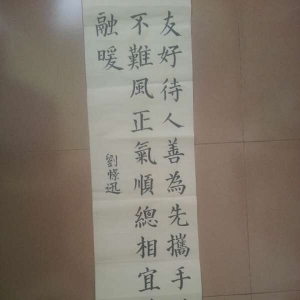 友好待人善為先攜手
不難風正氣順總相宜
融暖
劉條迅